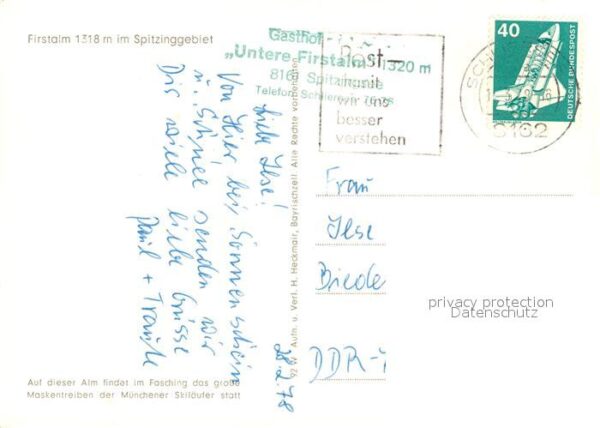 Firstalm 1318 m im Spitzinggebiet
Gasthof
„Untere Firstalm" 1320 m
8161 Spitzingsee
Telefon Schliersee
Post –
damit
wir uns
besser
verstehen
40
DEUTSCHE BUNDESPOST
8162
Liebe Ilse!
Von hier bei Sonnenschein
u. Schnee senden wir
Dir viele liebe Grüsse
Paul + Traude
28.2.78
92 W Aufn. u. Verl. H. Heckmair, Bayrischzell. Alle Rechte vorbehalten
Frau
Ilse
Biede
DDR-
privacy protection
Datenschutz
Auf dieser Alm findet im Fasching das große
Maskentreiben der Münchener Skiläufer statt